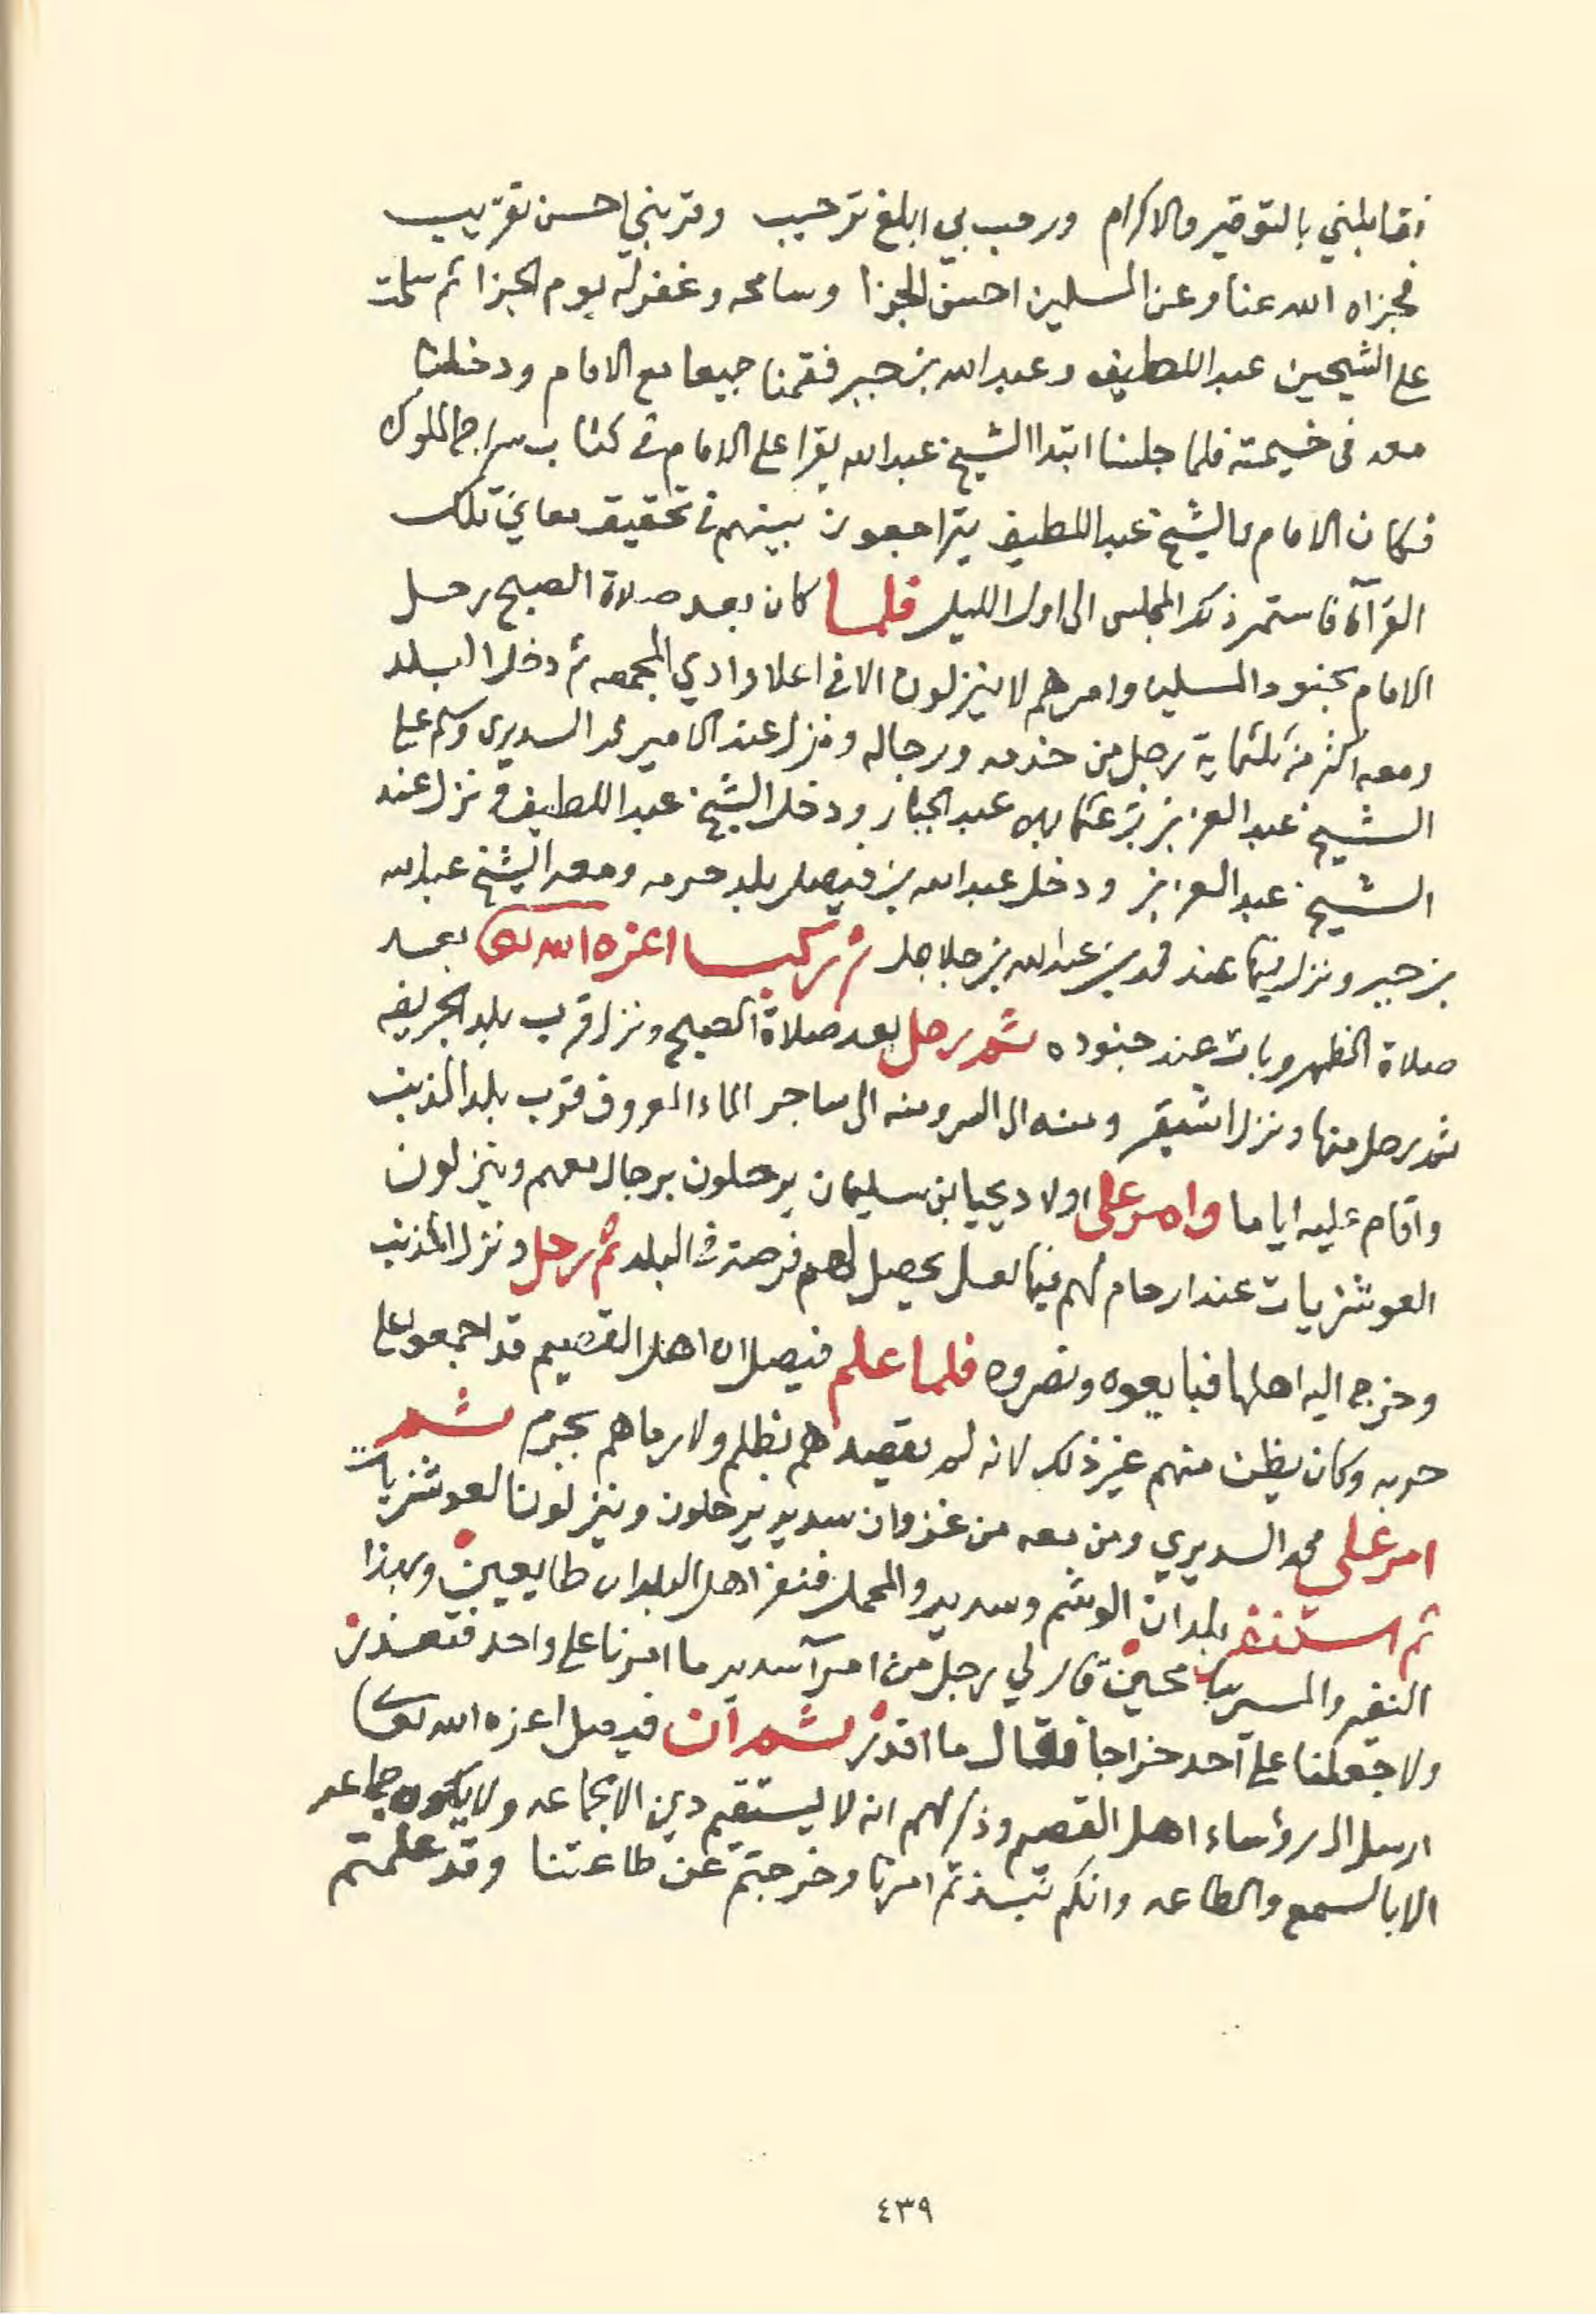 فقابلني بالتوقير والاكرام ورحب بي ابلغ ترحيب وقربني احسن تقريب
فجزاه الله عنا وعن المسلمين احسن الجزا وسامحه وغفر له يوم الجزا ثم سلمت
على الشيخين عبد اللطيف وعبد الله بن جبر فقمنا جميعا مع الامام ودخلنا
معه في خيمته فلما جلسنا ابتدا الشيخ عبد الله يقرا على الامام في كتاب سراج الملوك
فكان الامام والشيخ عبد اللطيف يتراجعون بينهم في تحقيق معاني تلك
القرآة فاستمر ذلك المجلس الى اول الليل فلما كان بعد صلاة الصبح رحل
الامام بجنود المسلمين وامرهم لا ينزلون الا في اعلا وادي المجمعه ثم دخل البلد
ومعه اكثر من ثلثماية رجل من خدمه ورجاله ونزل عند الامير محمد السديري وسلم على
الشيخ عبد العزيز بن عثمان بن عبد الجبار ودخل الشيخ عبد اللطيف ونزل عند
الشيخ عبد العزيز ودخل عبد الله بن فيصل بلد حرمه ومعه الشيخ عبد الله
بن جبر ونزل فيها عند محمد بن عبد الله بن جلاجل ثم ركب اعزه الله تعالى بعد
صلاة الظهر وبات عند جنوده ثم رحل بعد صلاة الصبح ونزل قرب بلد الحريق
ثم رحل منها ونزل اشيقر ومنه الى السر ومنه الى ساجر الماء المعروف قرب بلد المذنب
واقام عليه اياما وامر على اولاد يحيا ابن سليمان يرحلون برجال معهم وينزلون
العوشزيات عند ارحام لهم فيها لعل يحصل لهم فرصة في البلد ثم رحل ونزل المذنب
وخرج اليه اهلها فبايعوه ونصروه فلما علم فيصل ان اهل القصيم قد اجمعوا على
حربه وكان يظن منهم غير ذلك لانه لم يقصدهم بظلم ولا رماهم بجرم ثم
امر على محمد السديري ومن معه من غزوان سدير يرحلون وينزلون العوشزيات
ثم استنفر بلدان الوشم وسدير والمحمل فنفر اهل البلدان طايعين ولهذا
النفير والمسير محبين قال لي رجل من امرآ سدير ما امرنا على واحد فتعذر
ولا جعلنا على احد خراجا فقال ما اقدر ثم ان فيصل اعزه الله تعالى
ارسل الى رؤساء اهل القصيم وذكر لهم انه لا يستقيم دين الا بجماعه ولا يكون جماعه
الا بالسمع والطاعه وانكم نبذتم امرنا وخرجتم عن طاعتنا وقد علمتم
٤٣٩